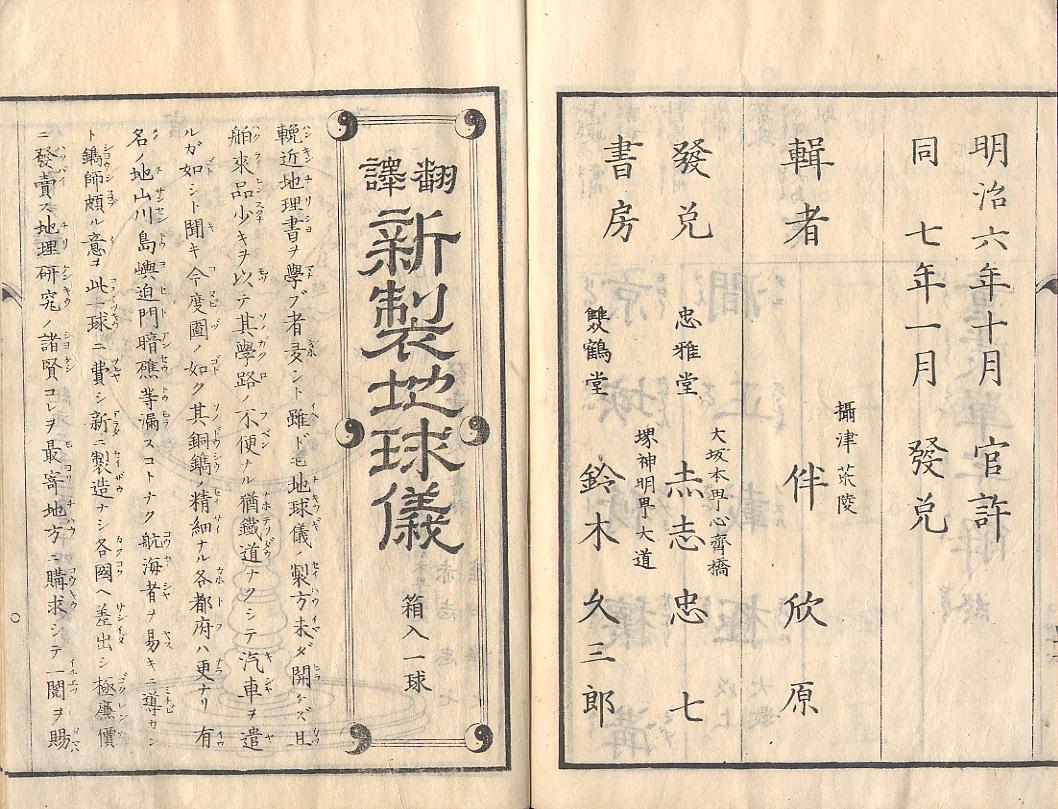 明治六年十月 官許
同 七年一月 發兌
攝津 茶陵
輯者 伴 欣原
大坂本町心齊橋
發兌 忠雅堂 赤志忠七
堺神明町大道
書房 雙鶴堂 鈴木久三郎
翻譯 新製地球儀 箱入一球
輓近地理書ヲ學ブ者多シト雖ドモ地球儀ノ製方未ダ開ケズ且
舶來品少キヲ以テ其學路ノ不便ナル猶鐵道ナクシテ汽車ヲ遣
ルガ如シト聞キ今度圖ノ如ク其銅鐫ノ精細ナル各都府ハ更ナリ有
名ノ地山川島嶼迫門暗礁等漏スコトナク航海者ヲ易キニ導カン
ト鐫師頗ル意ヲ此一球ニ費シ新ニ製造ナシ各國ヘ差出シ極廉價
ニ發賣ス地理研究ノ諸賢コレヲ最寄地方ニ購求シテ一閲ヲ賜